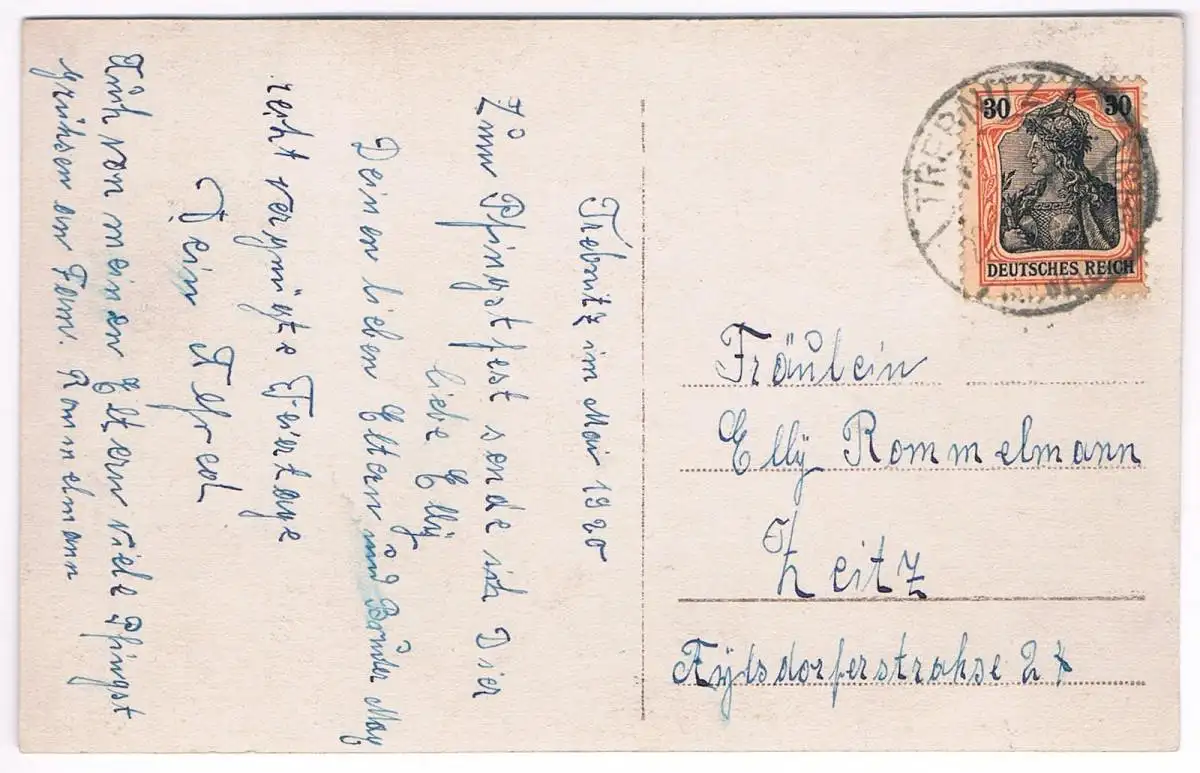 Trebnitz im Mai 1920
Zum Pfingstfest sende ich Dir
liebe Elly
Deinen lieben Eltern und Bruder Max
recht vergnügte Feiertage
Dein Alfred
Auch von meinen Eltern viele Pfingst
grühsen an Fam. Rommelmann
TREBNITZ
30 30
DEUTSCHES REICH
Fräulein
Elly Rommelmann
Zeitz
strahse